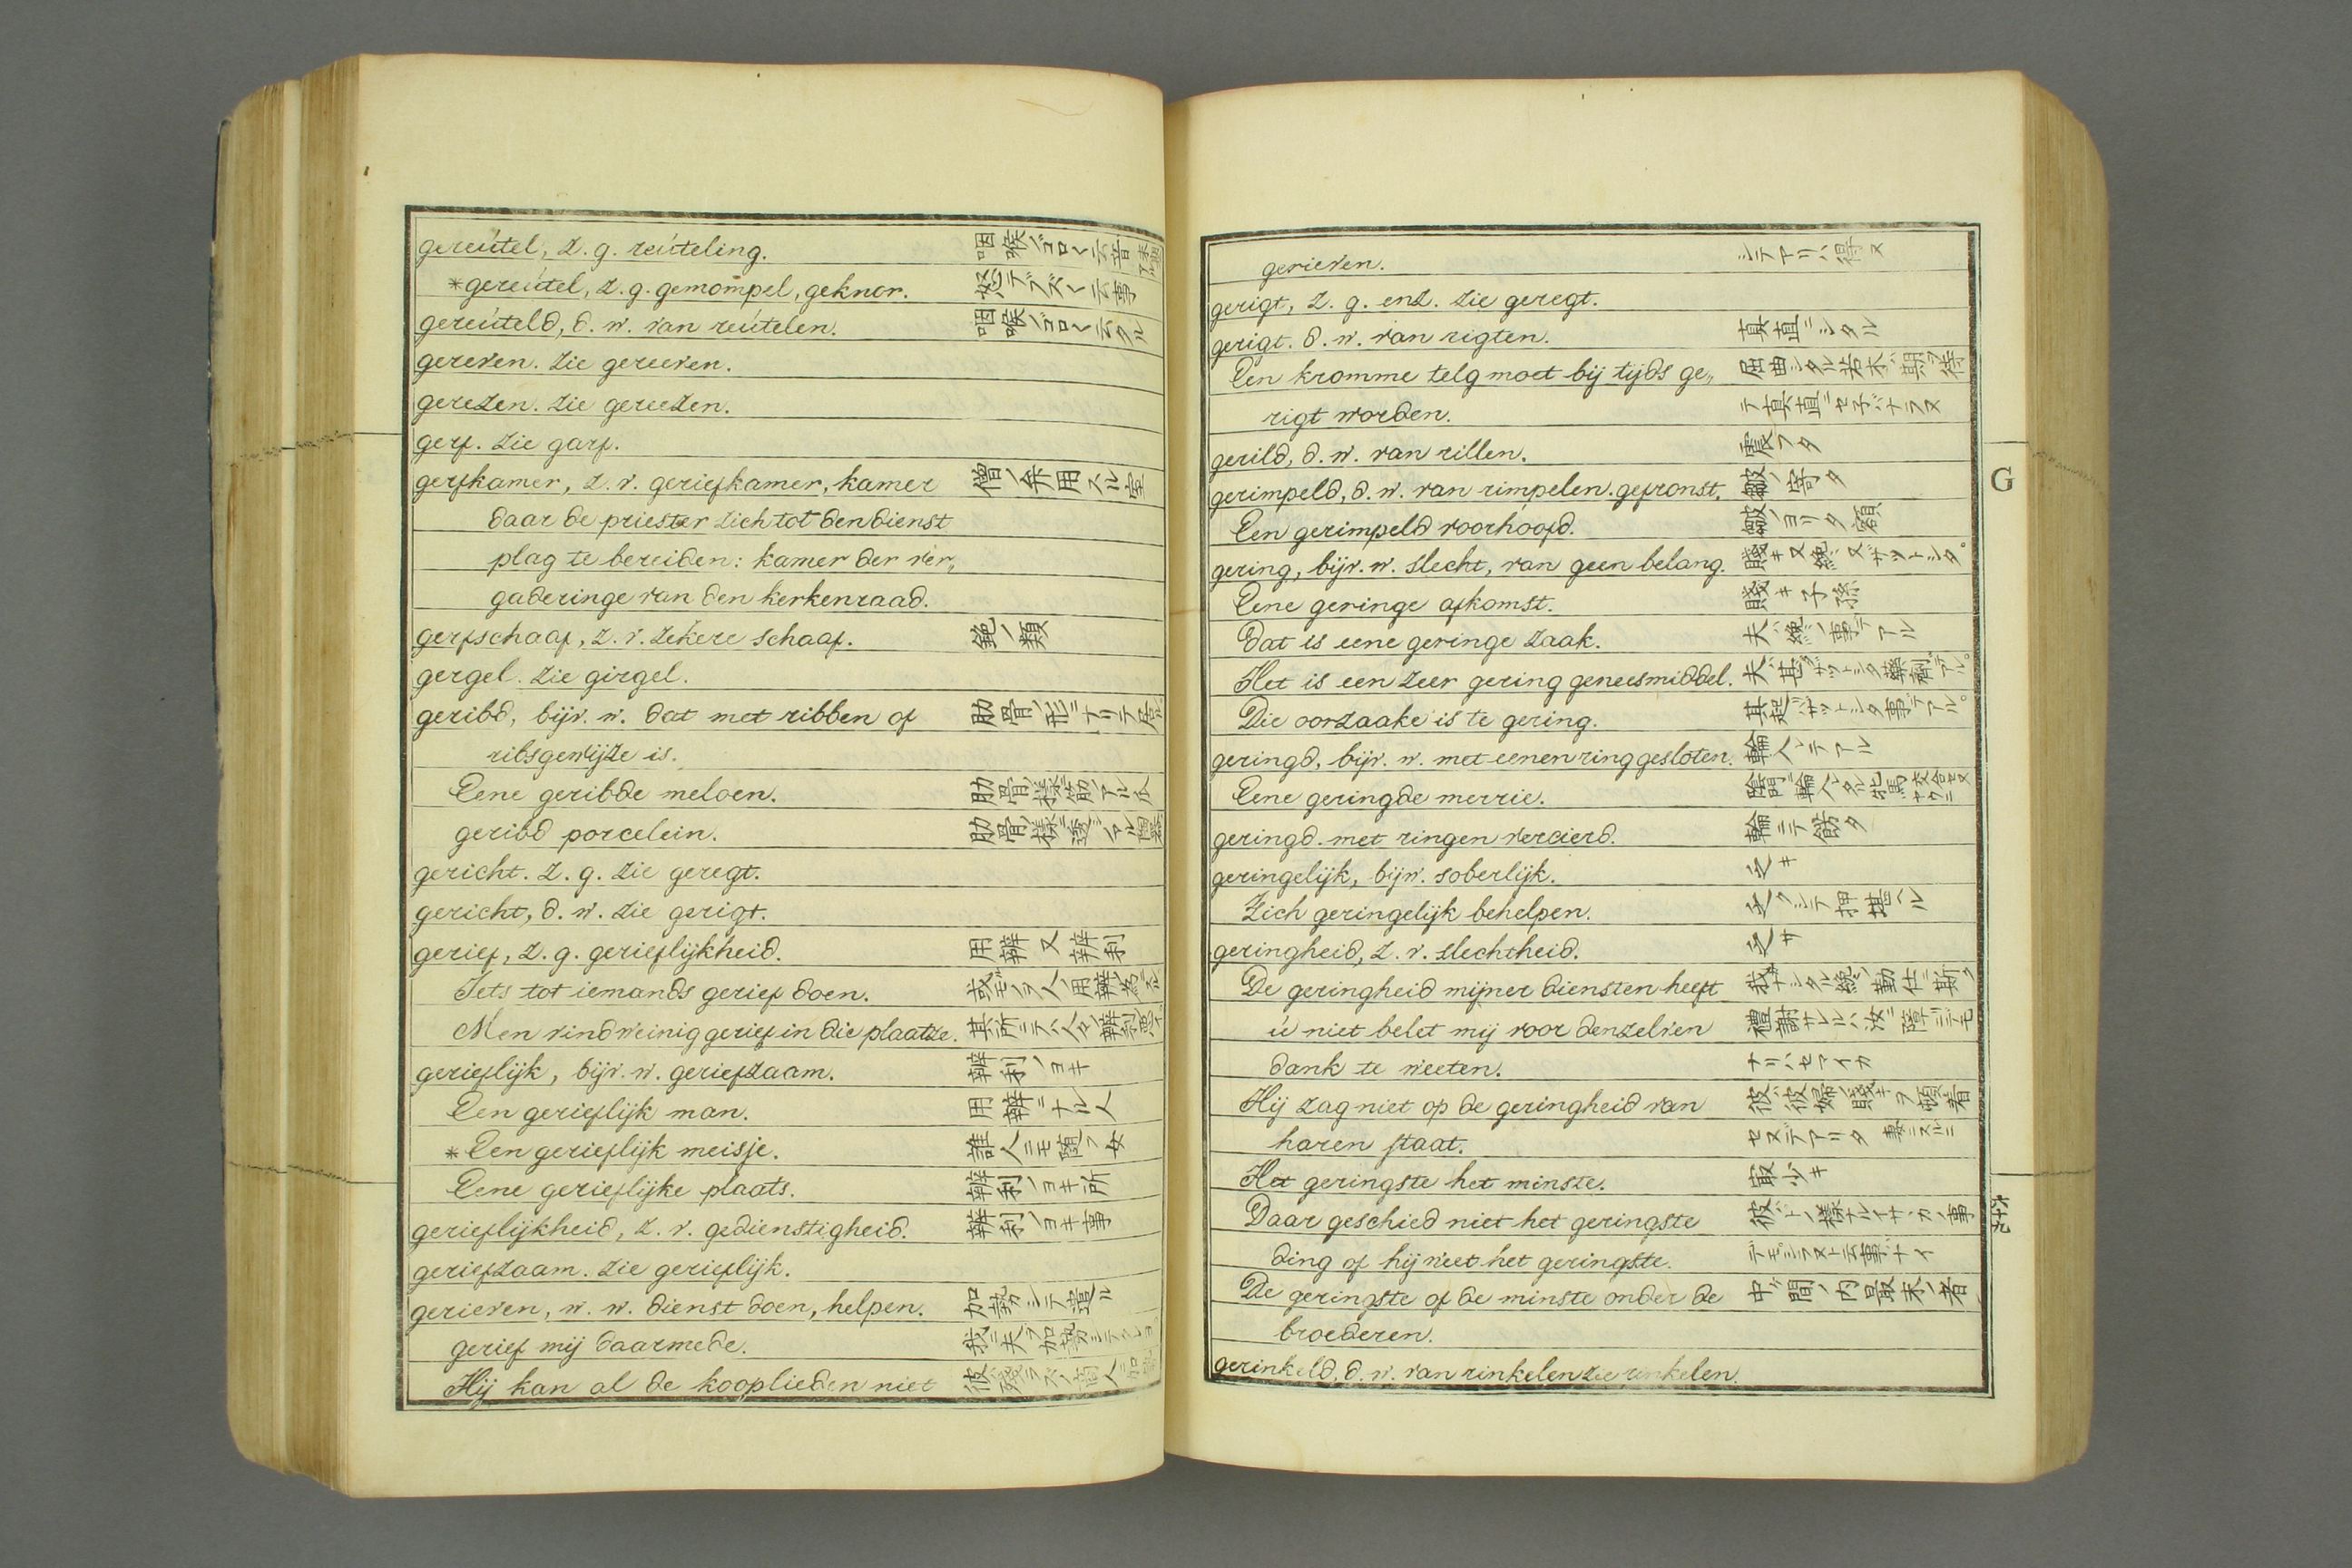 gereútel, z. g. reúteling. 咽喉ゴロ〱云音
*gereútel, z. g. gemompel, geknor. 怒テブズ〱云事
gereúteld, d. w. van reútelen. 咽喉ゴロ〱云タル
gereven. zie gereeven.
gerezen. zie gereezen.
gerf. zie garf.
gerfkamer, z. v. geriefkamer, kamer 僧ノ弁用スル室
daar de priester zich tot den dienst
plag te bereiden: kamer der ver„
gaderinge van den kerkenraad.
gerfschaaf, z. v. zekere schaaf. 鉋ノ類
gergel. zie girgel.
geribd, bijv. w. dat met ribben of 肋骨ノ形ニナリテ居ル
ribsgewijze is.
Eene geribde meloen. 肋骨ノ様ニ筋アル瓜
geribd porcelein. 肋骨ノ様ニ
gericht. z. g. zie geregt.
gericht, d. w. zie gerigt.
gerief, z. g. gerieflijkheid. 用辨又辨利
Iets tot iemands gerief doen. 或モノヲ人ノ用辨
Men vind weinig gerief in die plaatze. 其所ニテハ人ノ辨利
gerieflijk, bijv. w. geriefzaam. 辨利ノヨキ
Een gerieflijk man. 用辨ニナル人
*Een gerieflijk meisje. 誰人ニモ随フ女
Eene gerieflijke plaats. 辨利ノヨキ所
gerieflijkheid, z. v. gedienstigheid. 辨利ノヨキ事
geriefzaam. zie gerieflijk.
gerieven, w. w. dienst doen, helpen. 加勢シテ遣ル
gerief mij daarmede. 我ニ夫ヲ加勢シテ
Hij kan al de kooplieden niet 彼残ラズノ商人
gerieven. シテヤリハ得ヌ
gerigt, z. g. enz. zie geregt.
gerigt. d. w. van rigten. 真直ニシタル
Een kromme telg moet bij tijds ge„ 屈曲シタル若木ハ期ヲ待
rigt worden. テ真直ニセ子バナラヌ
gerild, d. w. van rillen. 震フタ
gerimpeld, d. w. van rimpelen. gefronst. 皺ノ寄タ
Een gerimpeld voorhoofd. 皺ノヨリタ額
gering, bijv. w. slecht, van geen belang. 賤キ又纔又ザットシタ。
Eene geringe afkomst. 賤キ子孫
Dat is eene geringe zaak. 夫ハ纔ノ事デアル
Het is een zeer gering geneesmiddel. 夫ハ甚ダザットシタ藥劑デアル。
Die oorzaake is te gering. 其起ハザットシタ事デアル。
geringd, bijv. w. met eenen ring gesloten. 輪入レテアル
Eene geringde merrie. 陰門ニ輪入レタル牝馬 交合セヌヤウニ
geringd. met ringen vercierd. 輪ニテ餝タ
geringelijk, bijw. soberlijk. 乏キ
Zich geringelijk behelpen. 乏クシテ押堪ヘル
geringheid, z. v. slechtheid. 乏サ
De geringheid mijner diensten heeft 我ガナシタル纔ノ勤仕ニ斯ク
ú niet belet mij voor denzelven 禮謝サレルハ汝ニ障リニモ
dank te weeten. ナリハセマイカ
Hij zag niet op de geringheid van 彼ハ彼婦ノ賤キヲ頓着
haren staat. セヌデアリタ 妻ニスルニ
Het geringste het minste. 最少キ
Daar geschied niet het geringste 彼ハドノ様ナルイサヽカノ事
ding of hij weet het geringste. デモシラヌト云事ナイ
De geringste of de minste onder de 中ヶ間ノ内最末ノ者
broederen.
gerinkeld, d. w. van rinkelen zie rinkelen.
G
六十九